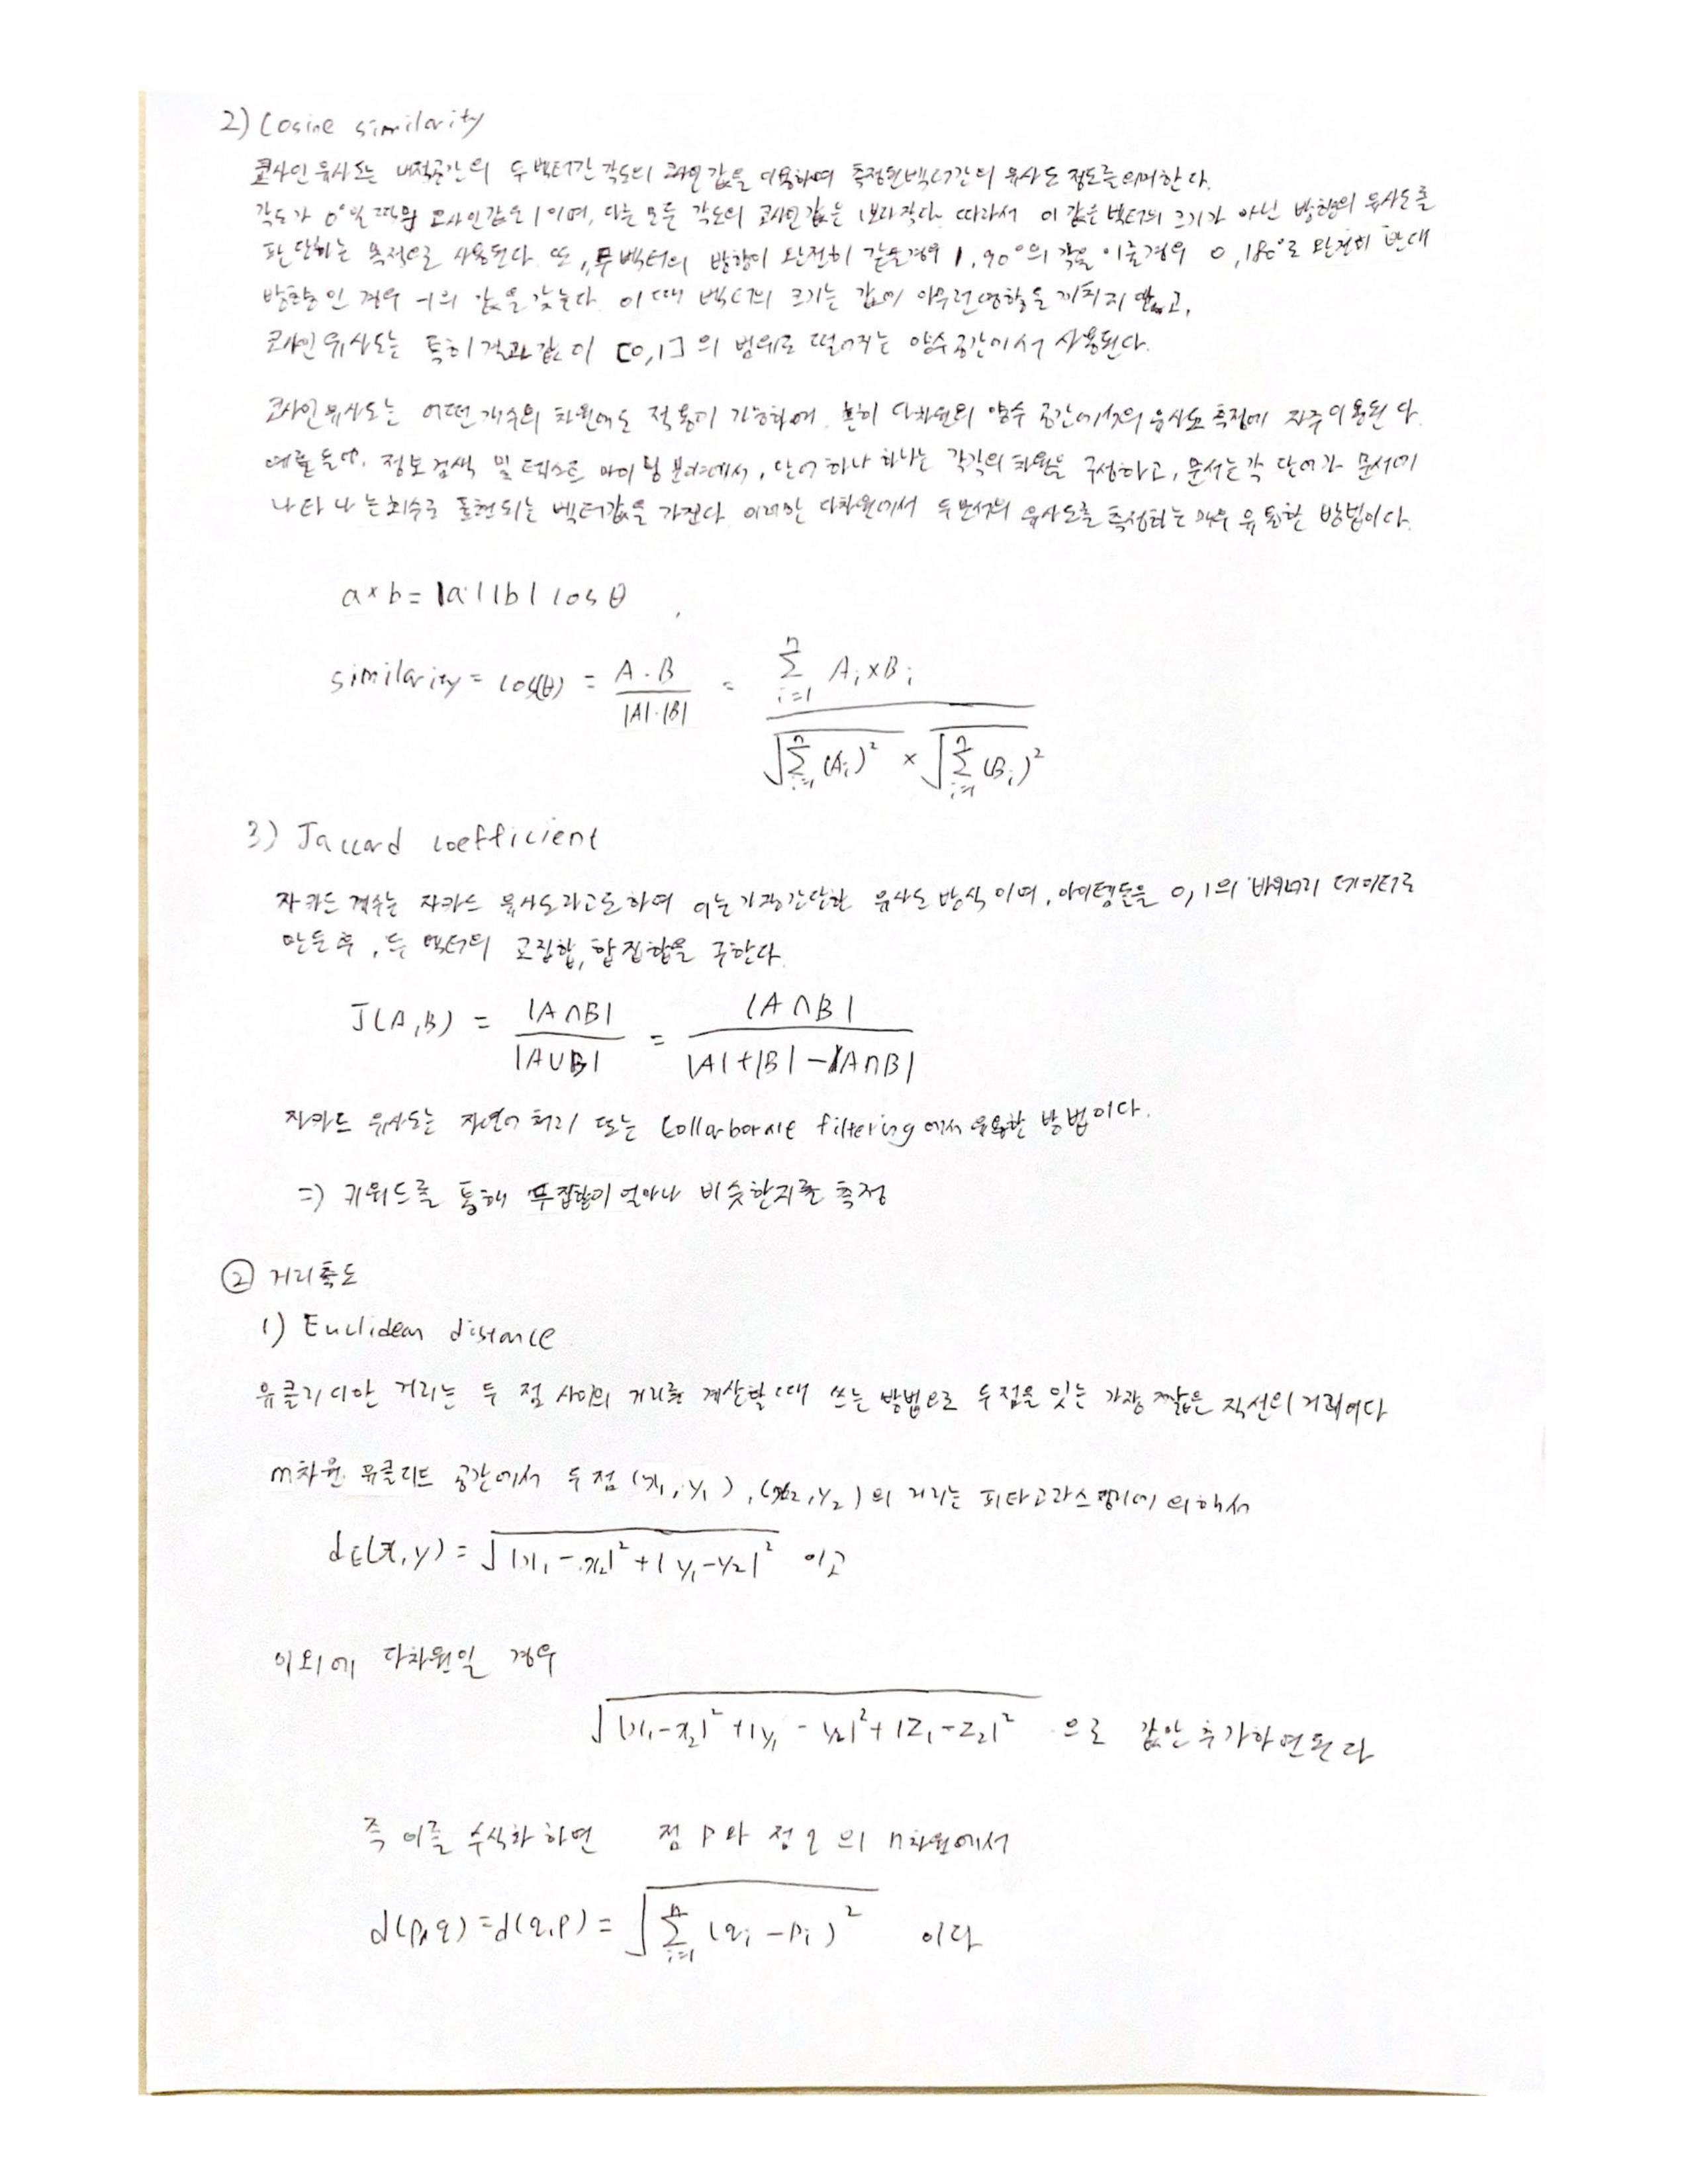 2) Cosine similarity
코사인 유사도는 내적공간의 두 벡터간 각도의 코사인 값을 이용하여 측정된 벡터간의 유사도 정도를 의미한다.
각도가 0°일 때의 코사인값은 1이며, 다른 모든 각도의 코사인값은 1보다 작다. 따라서 이 값은 벡터의 크기가 아닌 방향의 유사도를
판단하는 목적으로 사용된다. 또, 두 벡터의 방향이 완전히 같을경우 1, 90°의 각을 이룰경우 0, 180°로 완전히 반대
방향인 경우 -1의 값을 갖는다. 이 때 벡터의 크기는 값에 아무런 영향을 끼치지 않고,
코사인 유사도는 특히 결과값이 [0,1]의 범위로 떨어지는 양수공간에서 사용된다.
코사인유사도는 어떤 개수의 차원에도 적용이 가능하여, 흔히 다차원의 양수 공간에서의 유사도 측정에 자주 이용된다.
예를 들어, 정보검색 및 텍스트 마이닝 분야에서, 단어 하나 하나는 각각의 차원을 구성하고, 문서는 각 단어가 문서에
나타나는 회수로 표현되는 벡터값을 가진다. 이러한 다차원에서 두 문서의 유사도를 측정하는 매우 유용한 방법이다.
a×b = |a||b| cosθ
similarity = cos(θ) = A·B / |A|·|B| = Σ_{i=1}^{n} A_i×B_i / √Σ_{i=1}^{n}(A_i)² × √Σ_{i=1}^{n}(B_i)²
3) Jaccard coefficient
자카드 계수는 자카드 유사도라고도하며 이는 가장간단한 유사도 방식이며, 아이템들을 0,1의 바이너리 데이터로
만든 후, 두 벡터의 교집합, 합집합을 구한다.
J(A,B) = |A∩B| / |A∪B| = |A∩B| / |A|+|B|-|A∩B|
자카드 유사도는 자연어 처리 또는 Collarborate filtering에서 유용한 방법이다.
=> 키워드를 통해 두집합이 얼마나 비슷한지를 측정
② 거리측도
1) Euclidean distance
유클리디안 거리는 두 점 사이의 거리를 계산할 때 쓰는 방법으로 두점을 잇는 가장 짧은 직선의 거리이다
m차원 유클리드 공간에서 두 점 (x₁, y₁), (x₂, y₂)의 거리는 피타고라스정리에 의해서
d_E(x,y) = √|x₁-x₂|²+|y₁-y₂|² 이고
이외에 다차원일 경우
√|x₁-x₂|²+|y₁-y₂|²+|z₁-z₂|² 으로 값만 추가하면된다
즉 이를 수식화 하면 점 p와 점 q의 n차원에서
d(p,q) = d(q,p) = √Σ_{i=1}^{n}(q_i-p_i)² 이다